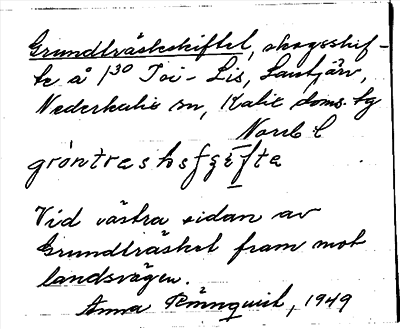 Grundträskskiftet, skogsskif-
te å 1³⁰ Toi-Lis, Lantjärv,
Nederkalix sn, Kalix doms. tg
Norrb l
gròntreshsfʃi̱fta
Vid västra sidan av
Grundträsket fram mot
landsvägen.
Anna Rönnquist, 1949